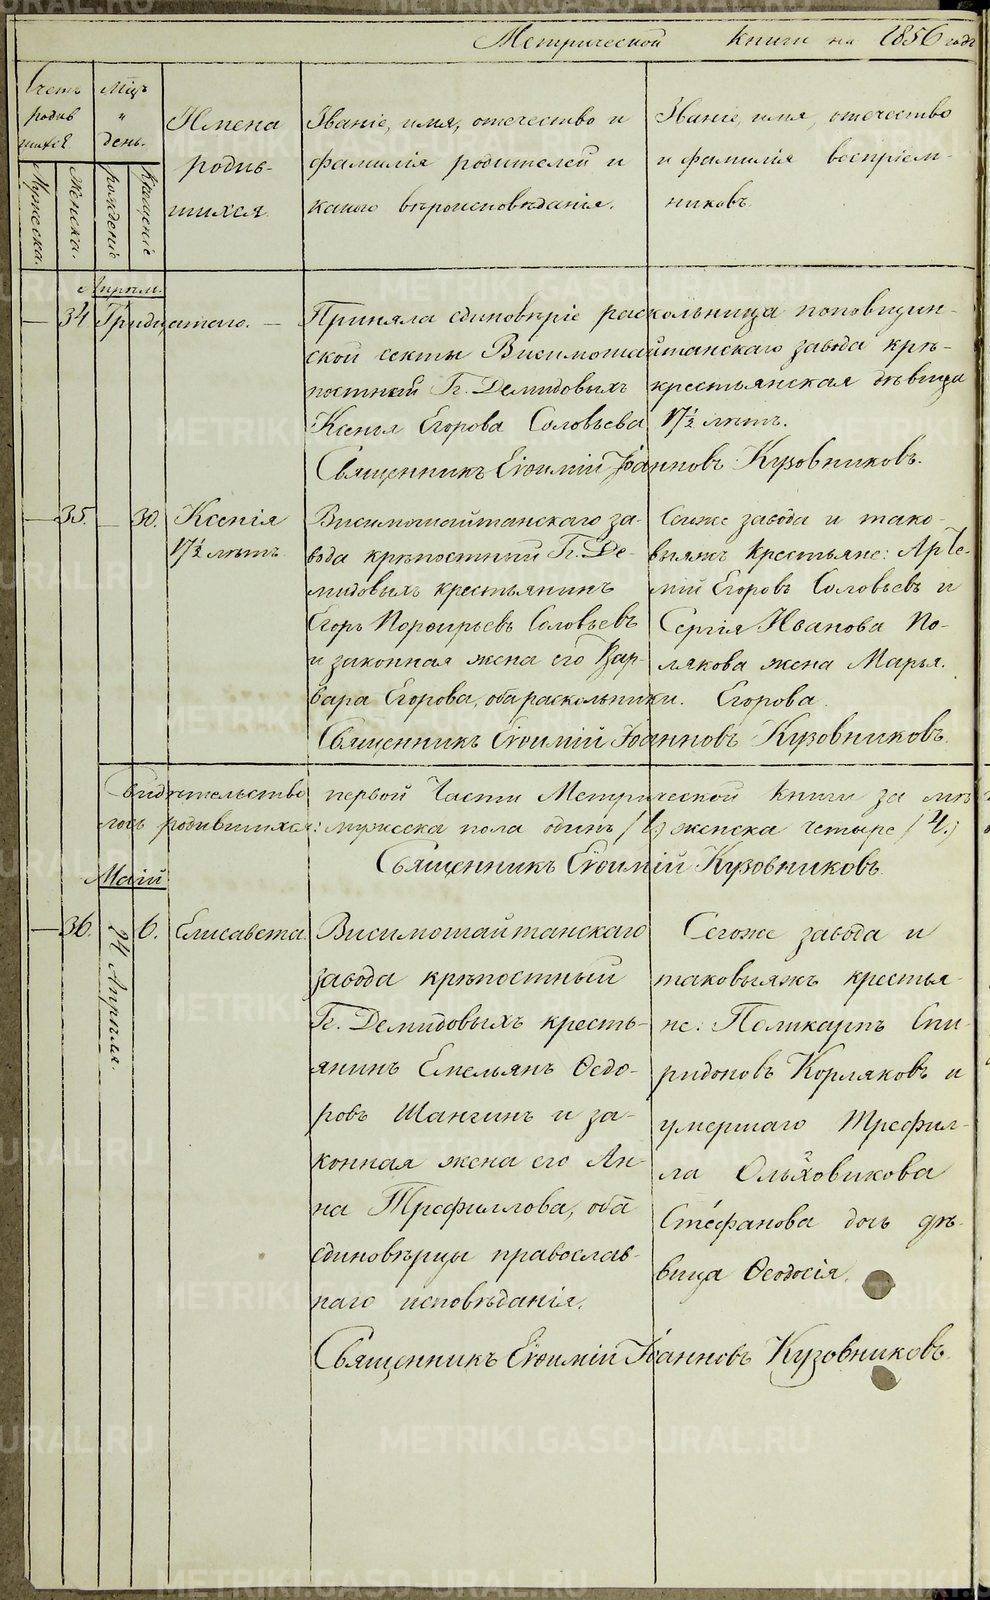 Метрической книги на 1856 годъ
Счетъ родив шихся
Мцъ и день.
Имена родив- шихся
Званіе, имя, отечество и
фамилія родителей и
какого вѣроисповѣданія.
Званіе, имя, отечество
и фамилія воспріем-
никовъ.
Мужеска.
Женска.
рожденіе
крещеніе
Апрѣль.
— 34 Тридцатаго. — Приняла единовѣріе раскольница поповщин-
ской секты Висимошайтанскаго завода крѣ-
постный Гг. Демидовыхъ крестьянская дѣвица
Ксенья Егорова Соловьева 17½ лѣтъ.
Священникъ Евѳимій Іоанновъ Кузовниковъ.
— 35. — 30. Ксенія
17½ лѣтъ.
Висимошайтанскаго за-
вода крѣпостный Гг. Де-
мидовыхъ крестьянинъ
Егоръ Порфирьевъ Соловьевъ
и законная жена его Вар-
вара Егорова, оба раскольники.
Сегоже завода и тако-
выяжъ крестьяне: Арте-
мій Егоровъ Соловьевъ и
Сергія Иванова По-
лякова жена Марья.
Егорова
Священникъ Евѳимій Іоанновъ Кузовниковъ.
Свидѣтельство первой Части Метрической книги за мѣ
родившихся: мужеска пола одинъ /1./ женска четыре /4./
Священникъ Евѳимій Кузовниковъ
Маій
— 36. 24 Апрѣля. 6. Елисавета.
Висимошайтанскаго
завода крѣпостный
Гг. Демидовыхъ кресть-
янинъ Емельянъ Ѳедо-
ровъ Шангинъ и за-
конная жена его Ан-
на Трефиллова, оба
единовѣрцы православ-
наго исповѣданія.
Сегоже завода и
таковыяжъ крестья-
не: Поликарпъ Спи-
ридоновъ Корляковъ и
умершаго Трефил-
ла Ольховикова
Стефанова дочь дѣ-
вица Ѳеодосія.
Священникъ Евѳимій Іоанновъ Кузовниковъ
METRIKI.GASO-URAL.RU